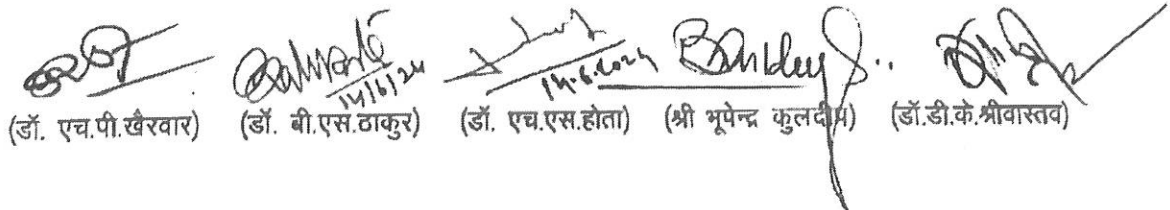 14/6/24 14.6.2024
(डॉ. एच.पी.खैरवार) (डॉ. बी.एस.ठाकुर) (डॉ. एच.एस.होता) (श्री भूपेन्द्र कुलदीप) (डॉ.डी.के.श्रीवास्तव)